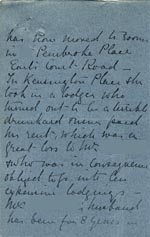 has now moved to rooms
in Pembroke Place
Earls Court Road -
In Kensington Place she
took in a lodger who
turned out to be a terrible
drunkard & never paid
his rent, which was a
great loss to Mrs
who was in consequence
obliged to go into an
expensive lodgings -
Mrs husband
has been for 8 years in